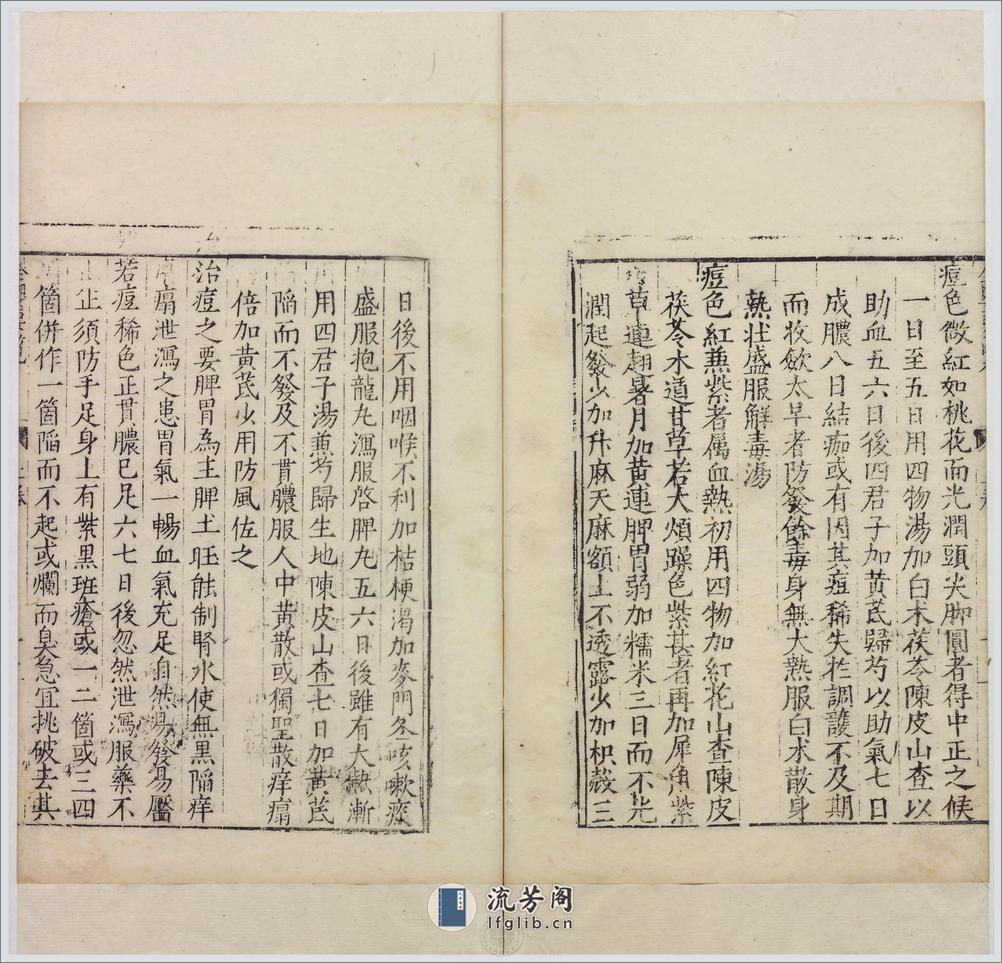 痘色微紅如桃花而光潤頭尖脚圓者得中正之候
一日至五日用四物湯加白术茯苓陳皮山查以
助血五六日後四君子加黄芪歸芍以助氣七日
成膿八日結痂或有因其痘稀失於調護不及期
而收歛太早者防發餘毒身無大熱服白术散身
熱状盛服解毒湯
痘色紅蕉紫者属血熱初用四物加紅花山查陳皮
茯苓木通甘草若大煩躁色紫甚者再加犀角紫
草連翹暑月加黄連脾胃弱加糯米三日而不光
潤起發少加升麻天麻額上不透露少加枳殼三
日後不用咽喉不利加桔梗渴加麥門冬咳嗽痰
盛服抱龍丸瀉服啓脾丸五六日後雖有大熱漸
用四君子湯蕉芍歸生地陳皮山查七日加黄芪
陥而不發及不貫膿服人中黄散或獨聖散痒癟
倍加黄芪少用防風佐之
治痘之要脾胃為主脾土旺能制腎水使無黑陥痒
癟泄瀉之患胃氣一暢血氣充足自然易發易靨
若痘稀色正貫膿已足六七日後忽然泄瀉服藥不
止須防手足身上有紫黑班瘡或一二箇或三四
箇併作一箇陥而不起或爛而臭急宜挑破去其
流芳阁
lfglib.cn